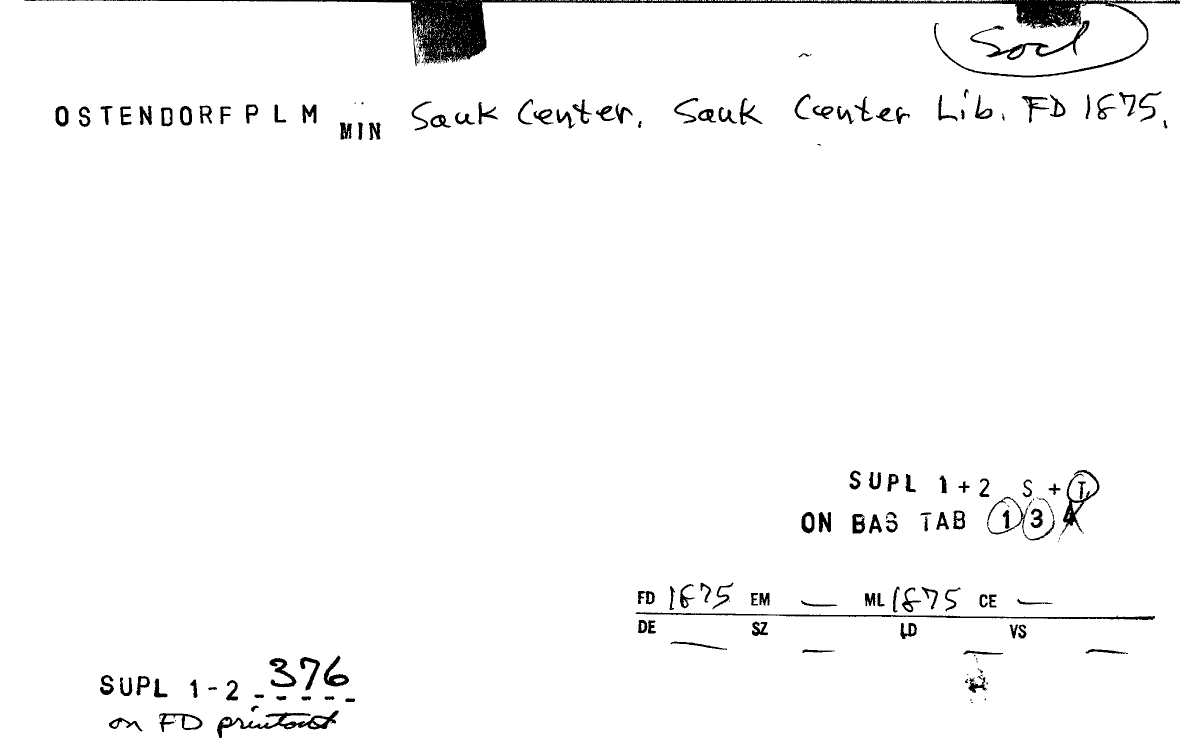 Socl
OSTENDORF P L M MIN Sauk Center, Sauk Center Lib. FD 1875,
SUPL 1+2 S + T
ON BAS TAB 1 3 4
FD 1875 EM — ML 1875 CE —
DE — SZ — LD — VS —
SUPL 1-2 376
on FD printout